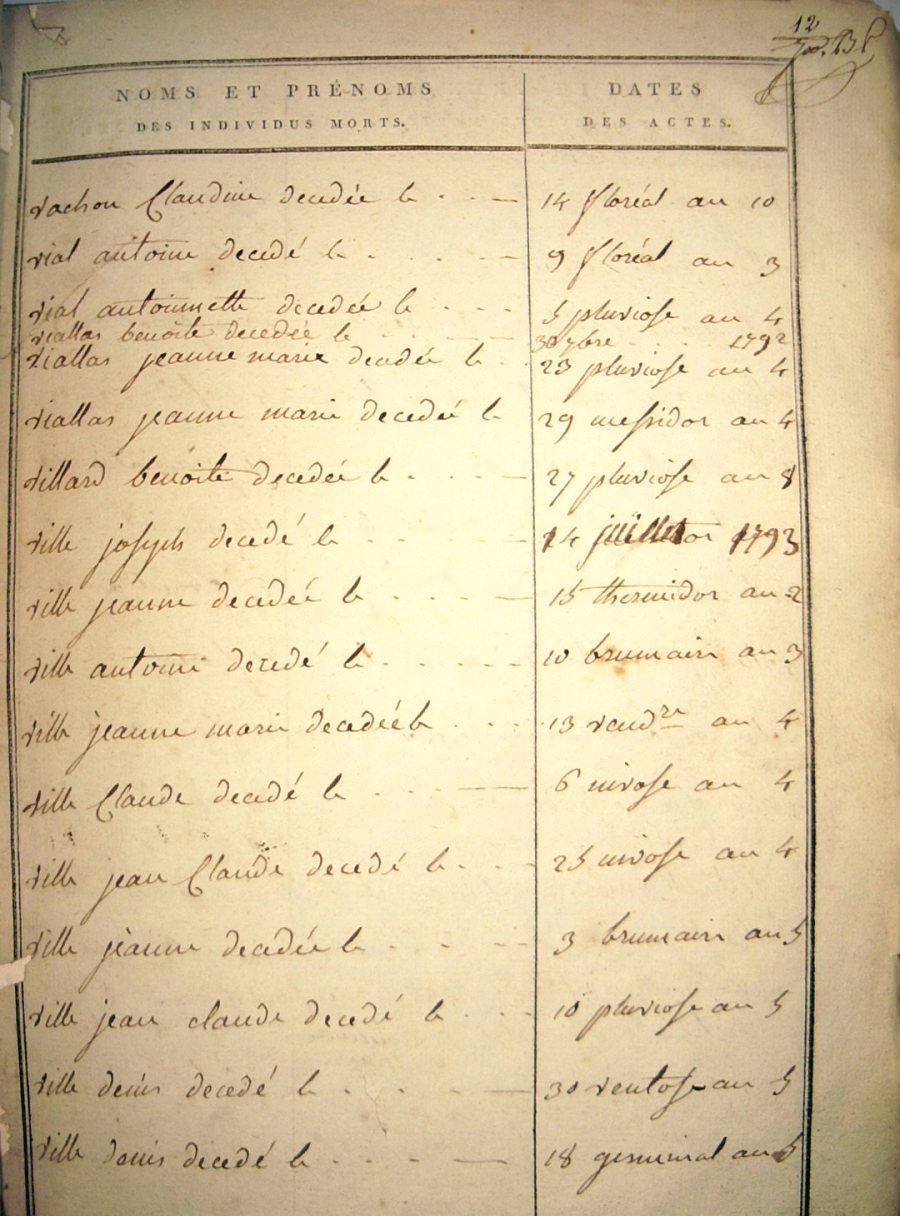 12
NOMS ET PRÉNOMS DATES
DES INDIVIDUS MORTS. DES ACTES.
vachon Claudine decedée le 14 floréal an 10
vial antoine decedé le 9 floréal an 3
vial antoinnette decedée le 5 pluviose an 4
viallas benoite decedée le 30 7bre 1792
viallas jeanne marie decedée le 23 pluviose an 4
viallas jeanne marie decedée le 29 messidor an 4
villard benoite decedée le 27 pluviose an 8
ville joseph decedé le 14 juillet 1793
ville jeanne decedée le 15 thermidor an 2
ville antoine decedé le 10 brumaire an 3
ville jeanne marie decedée le 13 vendre an 4
ville Claude decedé le 6 nivose an 4
ville jean Claude decedé le 25 nivose an 4
ville jeanne decedée le 3 brumaire an 5
ville jean claude decedé le 10 pluviose an 5
ville denis decedé le 30 ventose an 5
ville denis decedé le 18 germinal an 5